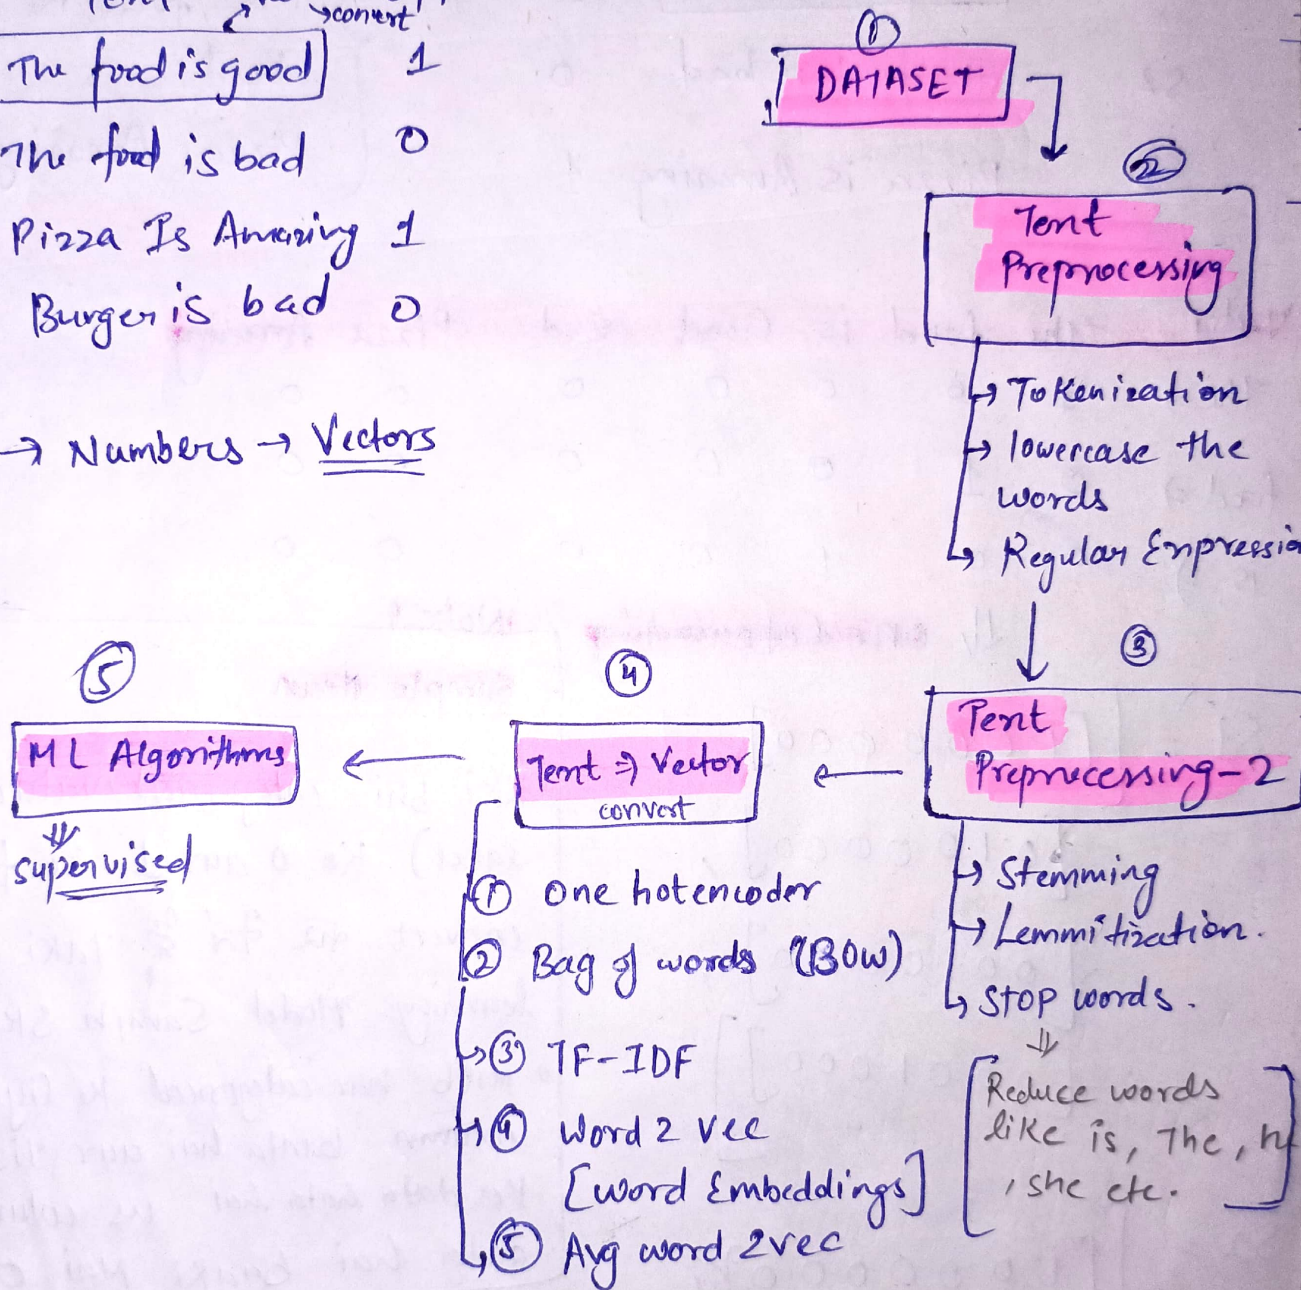 convert
The food is good 1
The food is bad 0
Pizza Is Amazing 1
Burger is bad 0
→ Numbers → Vectors
①
DATASET
②
Text
Preprocessing
Tokenization
lowercase the
words
Regular Expressio
③
Text
Preprocessing-2
Stemming
Lemmitization.
Stop words.
Reduce words
like is, The, h
, she etc.
④
Text ⇒ Vector
convert
① One hotencoder
② Bag of words (BOW)
③ TF-IDF
④ Word 2 vec
[word Embeddings]
⑤ Avg word 2vec
⑤
ML Algorithms
supervised